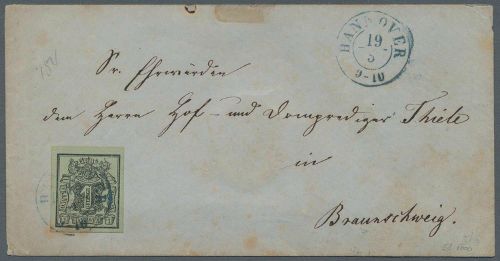 HANNOVER
19
5
9-10
Sr. Ehrwürden
dem Herrn Hof- und Domprediger Thiele
in
Braunschweig.